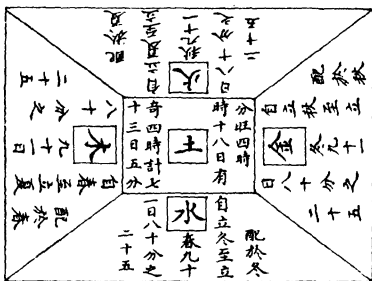 火
配於夏
自立夏至立
秋九十一
日八十分之
二十五
金
配於秋
自立秋至立
冬九十一
日八十分之
二十五
土
分旺四時
時十八日有
奇四時計七
十三日五分
木
配於春
自春至立夏
九十一日
八十分之
二十五
水
配於冬
自立冬至立
春九十
一日八十分之
二十五